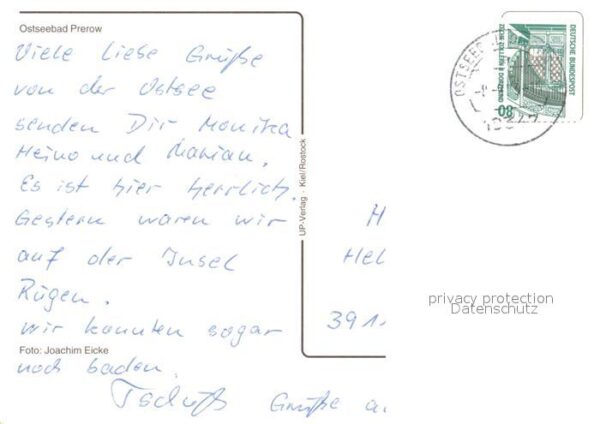 Ostseebad Prerow
Viele liebe Grüße
von der Ostsee
senden Dir Monika
Heino und Marian.
Es ist hier herrlich.
Gestern waren wir
auf der Insel
Rügen.
wir konnten sogar
Foto: Joachim Eicke
noch baden.
Tschüß Grüße a
UP-Verlag · Kiel/Rostock
H
Hel
391
DEUTSCHE BUNDESPOST
ZECHE ZOLLERN II DORTMUND
80
OSTSEEB
privacy protection
Datenschutz